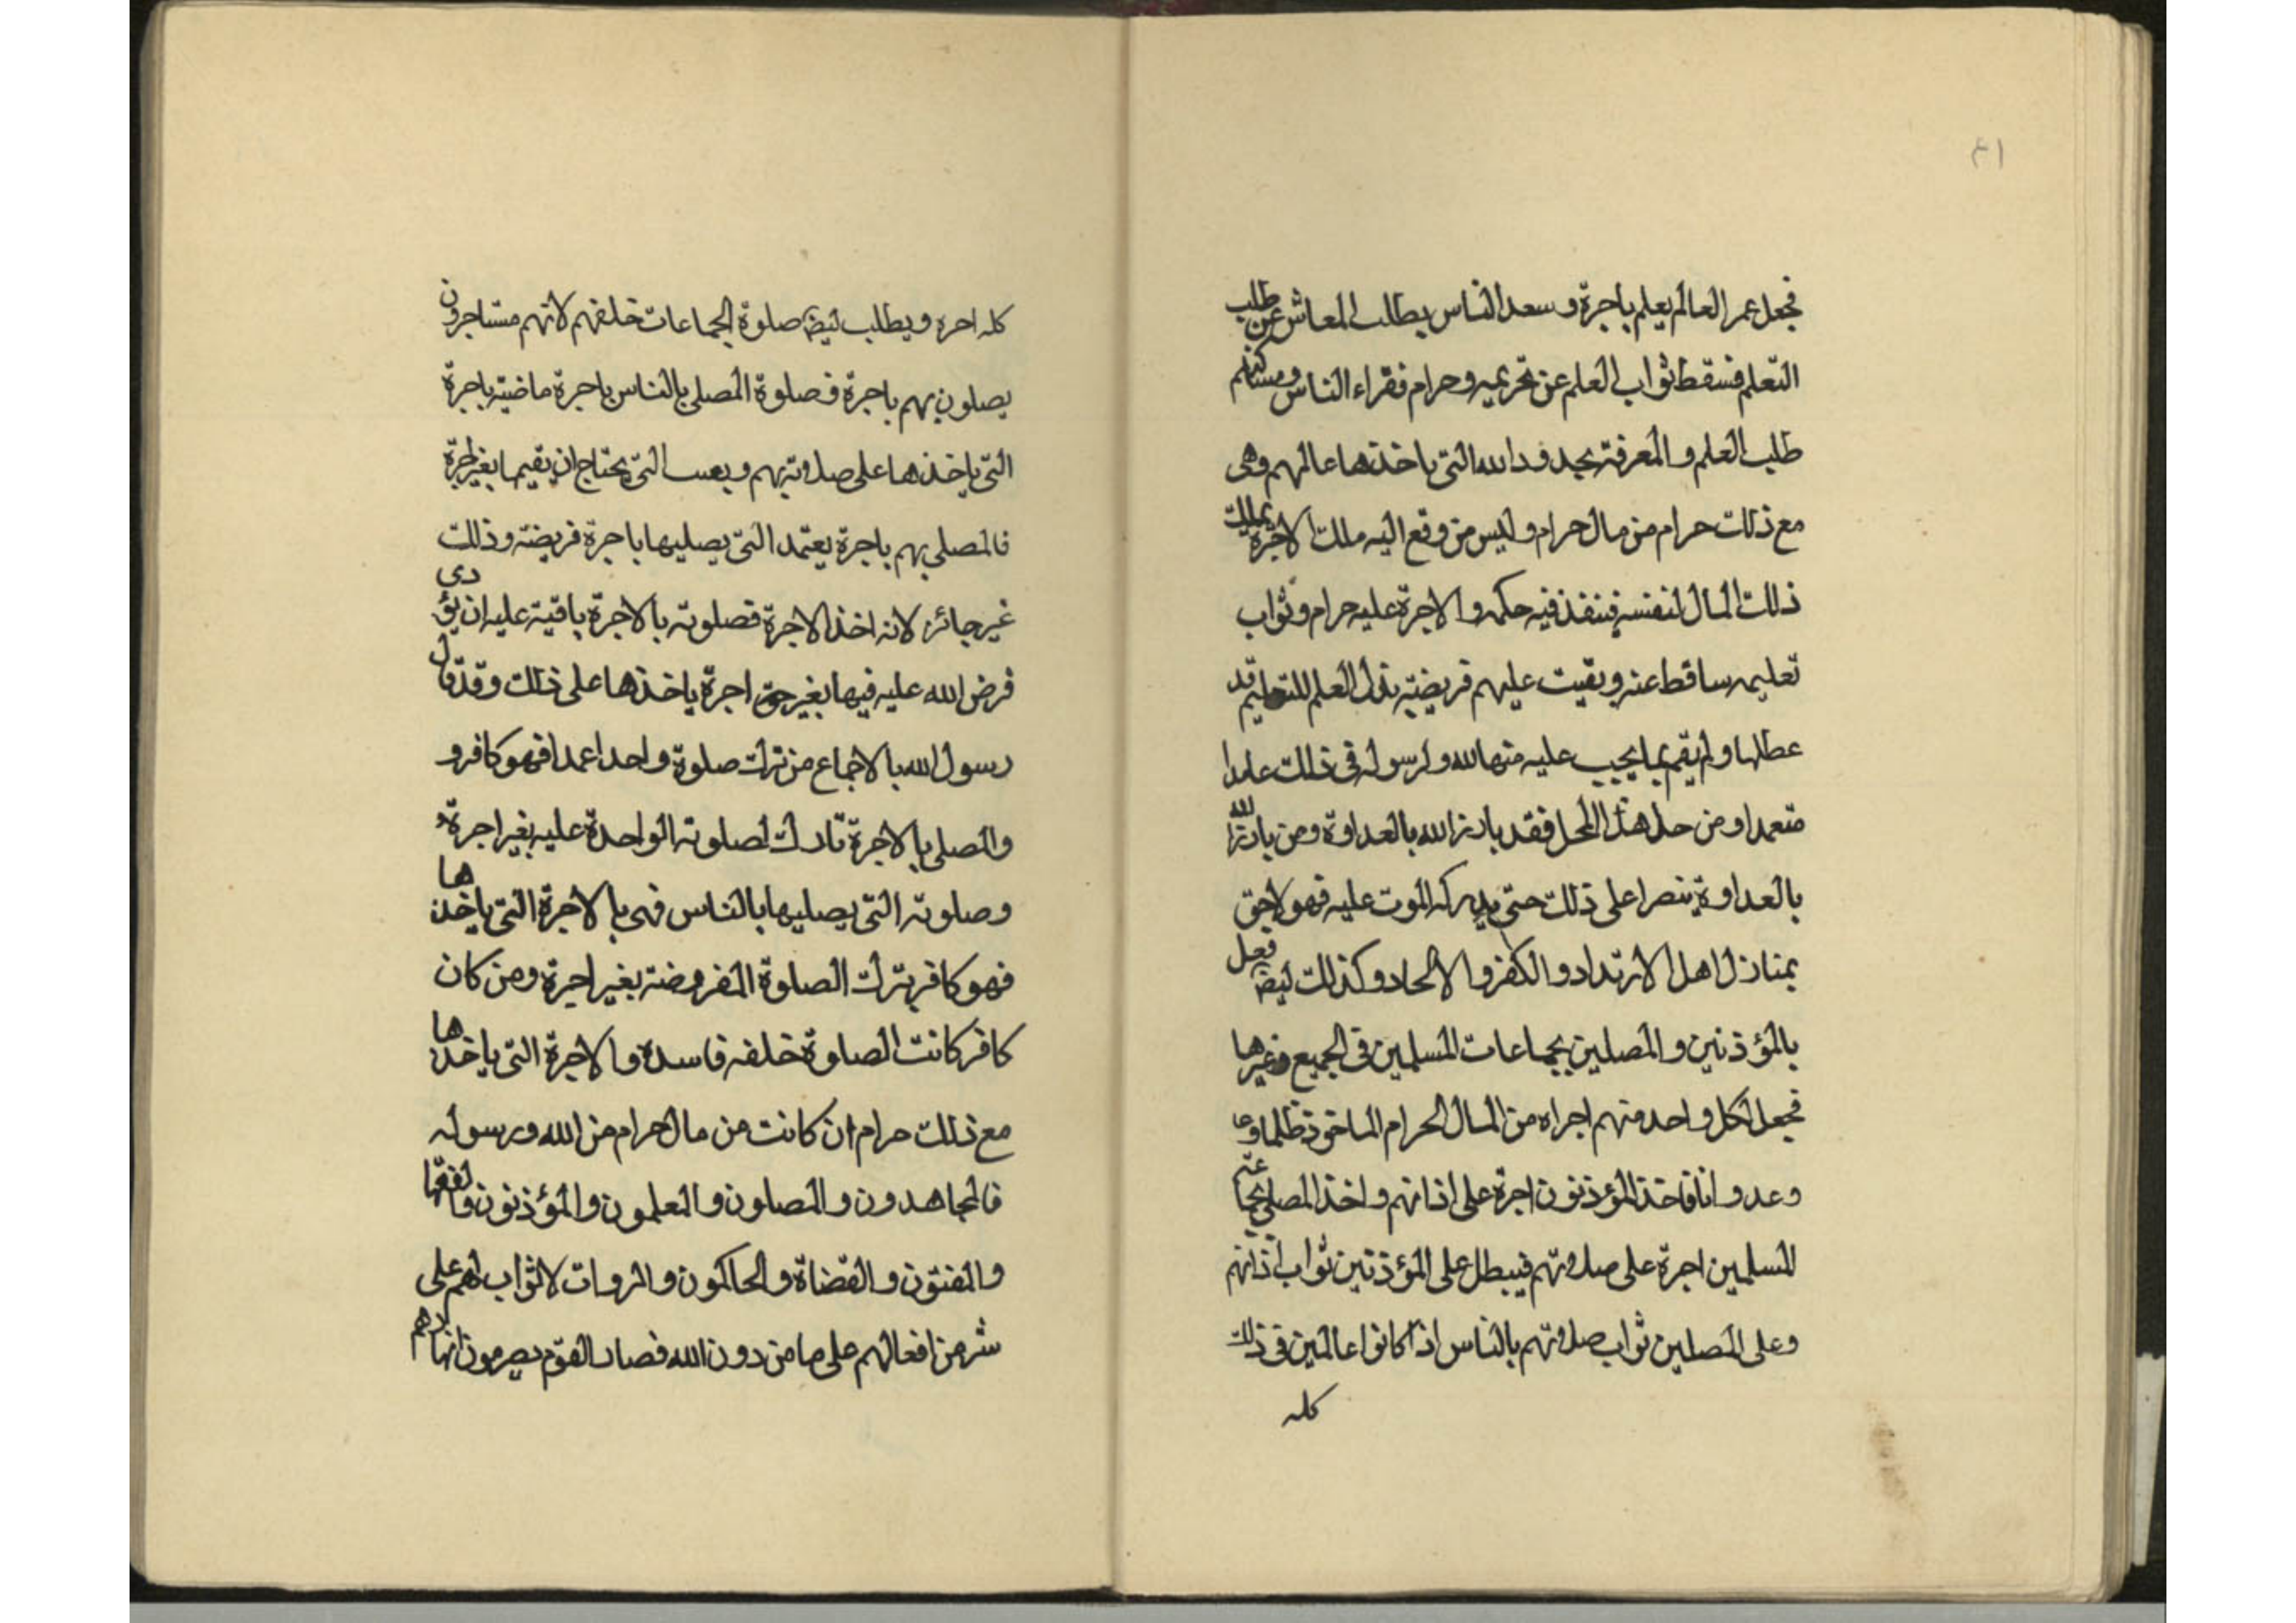 ٤١
فجعل عمر العالم يعلم باجرة و سعد الناس بطلب المعاش عن طلب
التعلم فسقط ثواب العلم عن تحريمه و حرام فقراء الناس و مساكنهم
طلب العلم و المعرفة الله التى ياخذها عالمهم وهى
مع ذلك حرام من مال حرام و ليس من وقع اليه ملك الاجرة بملك
ذلك المال لنفسه فينفذ فيه حكمه و الاجرة عليه حرام و ثواب
تعليمه ساقط عنه و بقيت عليهم فريضة بذل العلم للتعليم قد
عطلها و لم يقم بما يجب عليه منها لله و لرسوله فى ذلك عامدا
متعمدا و من حل هذا المحل فقد بارز الله بالعداوة ومن بارز الله
بالعداوة على ذلك حتى يدركه الموت عليه فهو لاحق
بمنازل اهل الارتداد و الكفر و الالحاد و كذلك ايضا فعل
بالمؤذنين و المصلين بجماعات المسلمين فى الجميع و غيرها
فجعل لكل واحد منهم اجراه من المال الحرام الماخوذ ظلما و
وعدوانا فاخذ المؤذنون اجرة على اذانهم و اخذ المصلى بجماعة
المسلمين اجرة على صلاوتهم فيبطل على المؤذنين ثواب اذانهم
وعلى المصلين ثواب صلاوتهم بالناس اذا كانوا عالمين فى ذلك
كله
كله اجره و يطلب ايضا صلوة الجماعات خلفهم لانهم مستاجرون
يصلون بهم باجرة فصلوة المصلى بالناس باجرة ماضية باجرة
التى ياخذها على صلاوته بهم و التى يحتاج ان يقيمها بغير اجرة
فالمصلى بهم باجرة يعتمد التى يصليها باجرة فريضة و ذلك
غير جائز لانه اخذ الاجرة فصلوته بالاجرة باقية عليه ان يؤدى
فرض الله عليه فيها بغير حق اجرة ياخذها على ذلك و قد قال
رسول الله بالاجماع من ترك صلوة واحدا عمدا فهو كافر و
والمصلى بالاجرة تارك لصلوته الواحدة عليه بغير اجرة
و صلوته التى يصليها بالناس فهى بالاجرة التى ياخذها
فهو كافر بترك الصلوة المفروضة بغير اجرة ومن كان
كافر كانت الصلوة خلفه فاسده والاجرة التى ياخذها
مع ذلك حرام ان كانت من مال حرام من الله و رسوله
فالمجاهدون و المصلون و المعلمون و المؤذنون و الفقها
و المفتون و القضاة و الحاكمون و الروات لا ثواب لهم على
شر من افعالهم على ما من دون الله فصار القوم يصرمون انها دهم